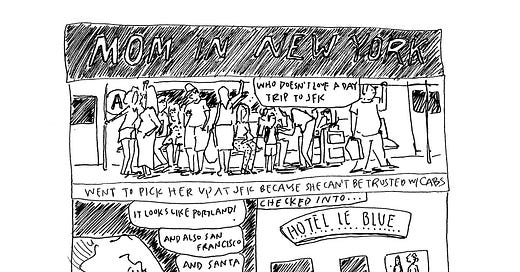 MOM IN NEW YORK
A
WHO DOESN'T LOVE A DAY
TRIP TO JFK
WENT TO PICK HER UP AT JFK BECAUSE SHE CAN'T BE TRUSTED W/CABS
IT LOOKS LIKE PORTLAND!
AND ALSO SAN
FRANCISCO
AND SANTA
CHECKED INTO...
HOTEL LE BLUE